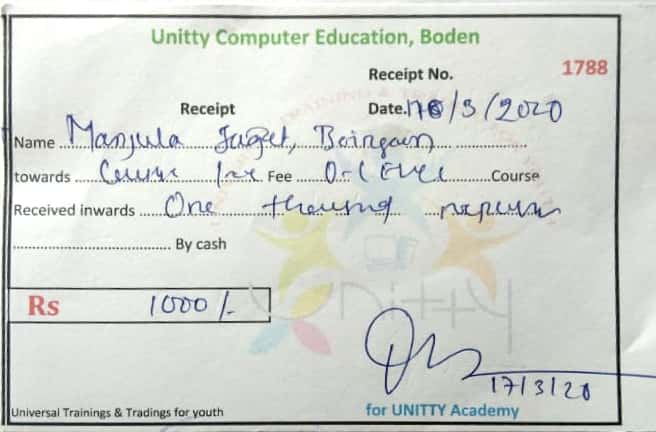 Unitty Computer Education, Boden
Receipt No. 1788
Receipt Date. /3/2020
Name Manjula Jagat, Boirgaon
towards Course Fee O-level Course
Received inwards One thousand rupees
By cash
Rs 1000/-
17/3/20
Universal Trainings & Tradings for youth for UNITTY Academy